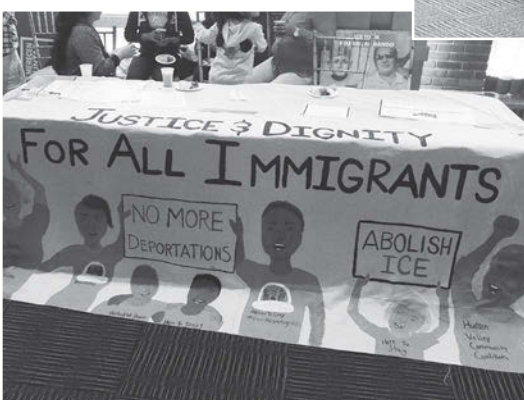 JUSTICE & DIGNITY
FOR ALL IMMIGRANTS
NO MORE
DEPORTATIONS
ABOLISH
ICE
Here to Stay!
Here To
Stay
Hudson
Valley
Community
Coalition